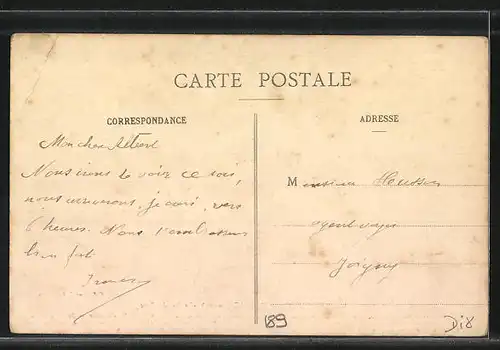 CARTE POSTALE
CORRESPONDANCE
ADRESSE
Mon cher
Nous irons te voir ce soir,
nous arriverons, je crois, vers
6 heures. Nous t'embrassons
bien fort
Monsieur
agent voyer
Joigny
189